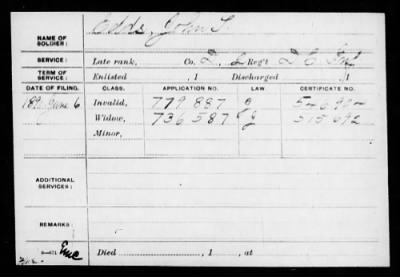 NAME OF SOLDIER: Odds, John T.
SERVICE: Late rank, Co. D, 2 Reg't D.C. Inf
TERM OF SERVICE: Enlisted , 1 Discharged , 1
DATE OF FILING. CLASS. APPLICATION NO. LAW. CERTIFICATE NO.
189 June 6 Invalid, 779 887 g
Widow, 736 587 g 515 692
Minor,
ADDITIONAL SERVICES:
REMARKS:
Died , 1 , at